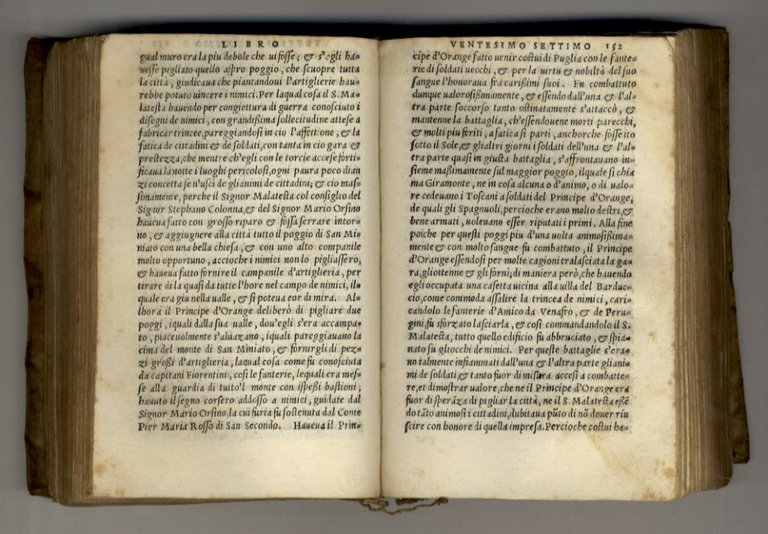 LIBRO
qual muro era la piu debole che ui fosse; & s'egli ha-
uesse pigliato quello aspro poggio, che scuopre tutta
la città, giudicaua che piantandoui l'artiglierie hau-
rebbe potuto uincere i nimici. Per laqual cosa il S. Ma-
latesta hauendo per congiettura di guerra conosciuto i
disegni de nimici, con grandissima sollecitudine attese a
fabricar trincee, pareggiandosi in ciò l'affettione, & la
fatica de cittadini & de soldati, con tanta in cio gara &
prestezza, che mentre ch'egli con le torcie accese forti-
ficaua la notte i luoghi pericolosi, ogni paura poco dian
zi concetta se n'uscì de gli animi de cittadini; & ciò mas-
simamente, perche il Signor Malatesta col consiglio del
Signor Stephano Colonna, & del Signor Mario Orsino
haueua fatto con grosso riparo & fossa serrare intor-
no, & aggiugnere alla città tutto il poggio di San Mi-
niato con una bella chiesa, & con uno alto campanile
molto opportuno, accioche i nimici non lo pigliassero,
& haueua fatto fornire il campanile d'artiglieria, per
tirare di la quasi da tutte l'hore nel campo de nimici, il-
quale era giu nella ualle, & si poteua eor di mira. Al-
lhora il Principe d'Orange deliberò di pigliare due
poggi, iquali dalla sua ualle, dou'egli s'era accampa-
to, piaceuolmente s'alzauano, iquali pareggiauano la
cima del monte di San Miniato, & fornirgli di pez-
zi grossi d'artiglieria, laqual cosa come fu conosciuta
da capitani Fiorentini, così le fanterie, lequali era mes-
se alla guardia di tutto'l monte con ispessi bastioni,
hauuto il segno corsero addosso a nimici, guidate dal
Signor Mario Orsino, la cui furia fu sostenuta dal Conte
Pier Maria Rosso di San Secondo. Haueua il Prin-
VENTESIMO SETTIMO 152
cipe d'Orange fatto uenir costui di Puglia con le fante-
rie di soldati uecchi, & per la uirtu & nobiltà del suo
sangue l'honoraua fra carissimi suoi. Fu combattuto
dunque ualorosissimamente, & essendo dall'una & l'al-
tra parte soccorso tanto ostinatamente s'attaccò, &
mantenne la battaglia, ch'essendouene morti parecchi,
& molti piu feriti, a fatica si partì, anchorche fosse ito
sotto il Sole, & gli altri giorni i soldati dell'una & l'al-
tra parte quasi in giusta battaglia, s'affrontauano in-
sieme massimamente sul maggior poggio, ilquale si chia
ma Giramonte, ne in cosa alcuna o d'animo, o di ualo-
re cedeuano i Toscani a soldati del Principe d'Orange,
de quali gli Spagnuoli, percioche erano molto destri, &
bene armati, uoleuano esser riputati i primi. Alla fine
poiche per questi poggi piu d'una uolta animosissima-
mente & con molto sangue fu combattuto, il Principe
d'Orange essendosi per molte cagioni tralasciata la ga-
ra, gli ottenne & gli fornì; di maniera però, che hauendo
egli occupata una casetta uicina alla uilla del Barduc-
cio, come commoda assalire la trincea de nimici, cari-
candolo le fanterie d'Amico da Venafro, & de Peru-
gini, fu sforzato lasciarla, & così commandando il S.
Malatesta, tutto quello edificio fu abbruciato, & spia-
nato su gli occhi de nimici. Per queste battaglie s'era-
no talmente infiammati dall'una & l'altra parte gli ani-
mi de soldati & tanto fuor di misura accesi a combatte-
re, et dimostrar ualore, che ne il Principe d'Orange era
fuor di speraza di pigliar la città, ne il S. Malatesta essē
do tāto animosi i cittadini, dubitaua pūto di nō douer riu
scire con honore di quella impresa. Percioche costui ha-